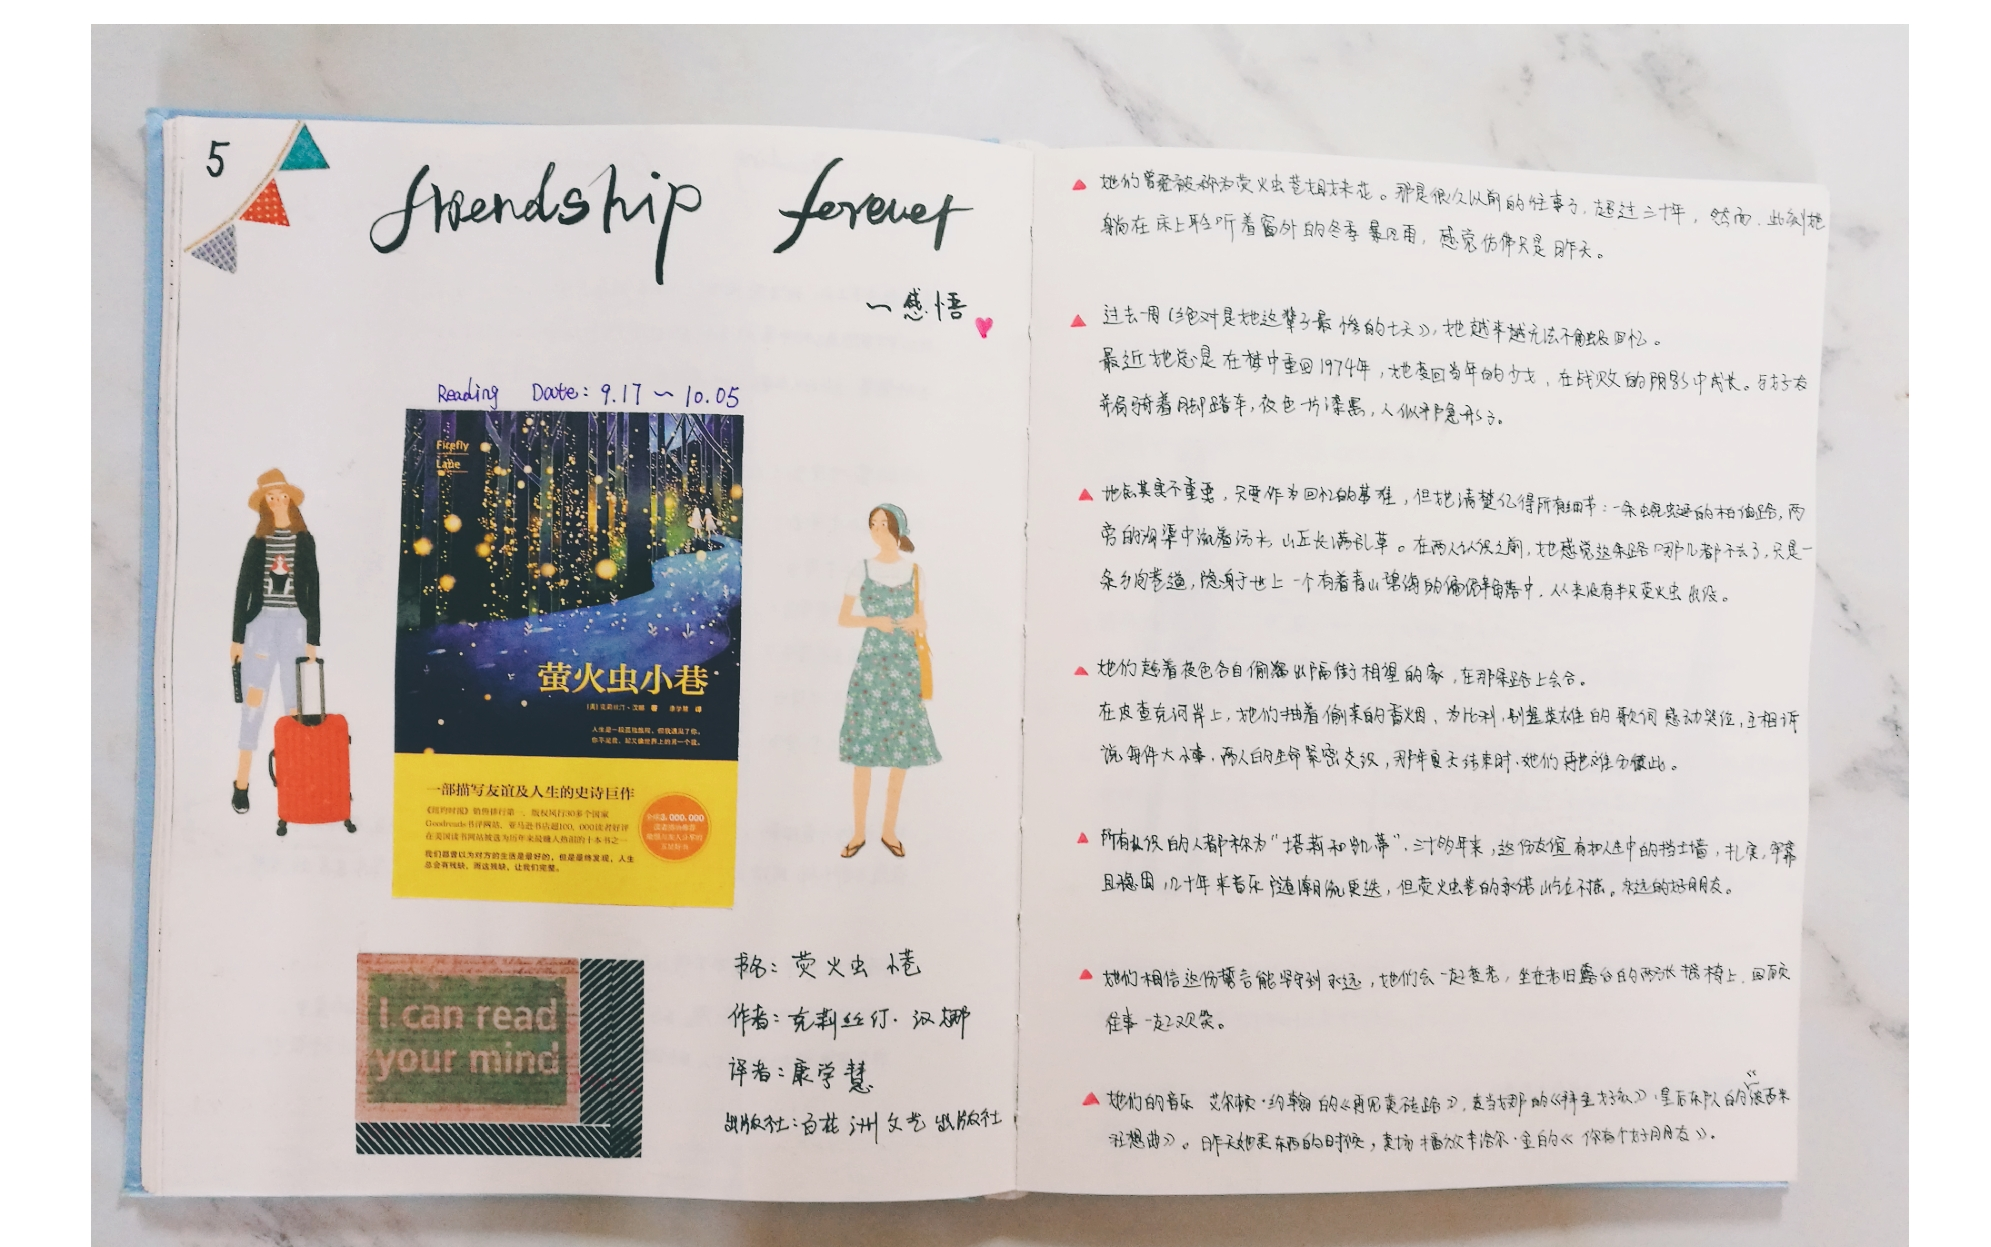 5
friendship forever
~感悟
Reading Date: 9.17 ~ 10.05
Firefly
Lane
萤火虫小巷
[美] 克莉丝汀·汉娜 著 康学慧 译
人生是一段孤独旅程，但我遇见了你。
你不是我，却又像世界上的另一个我。
一部描写友谊及人生的史诗巨作
《纽约时报》销售排行第一，版权风行30多个国家
Goodreads书评网站、亚马逊书店超100,000读者好评
在美国读书网站被选为历年来最赚人热泪的十本书之一
我们都曾以为对方的生活是最好的，但是最终发现，人生
总会有残缺，而这残缺，让我们完整。
000,000
I can read
your mind
书名：荧火虫小巷
作者：克莉丝汀·汉娜
译者：康学慧
出版社：百花洲文艺出版社
她们曾经被称为荧火虫巷姐妹花。那是很久以前的往事了，超过三十年，然而，此刻她
躺在床上聆听着窗外的冬季暴风雨，感觉仿佛只是昨天。
过去一周（绝对是她这辈子最惨的七天），她越来越无法不触及回忆。
最近她总是在梦中重回1974年，她变回当年的少女，在战败的阴影中成长。与好友
并肩骑着脚踏车，夜色一片漆黑，人似乎隐形了。
地点其实不重要，只要作为回忆的基准，但她清楚记得所有细节：一条蜿蜒的柏油路，两
旁的沟渠中流着污水，山丘长满乱草。在两人认识之前，她感觉这条路哪儿都不去了，只是一
条乡间巷道，隐身于世上一个有着青山碧海的偏僻角落中，从来没有半只荧火虫出没。
她们趁着夜色各自偷溜出隔街相望的家，在那条路上会合。
在皮查克河岸上，她们抽着偷来的香烟，为比利，别逞英雄的歌词感动哭泣，互相诉
说每件大小事，两人的生命紧密交织，那年夏天结束时，她们再也难分彼此。
所有认识的人都称为“塔莉和凯蒂”，三十多年来，这份友谊有如人生中的挡土墙，扎实，牢靠
且稳固，几十年来音乐随潮流更迭，但荧火虫巷的承诺屹立不摇。永远的好朋友。
她们相信这份誓言能坚守到永远，她们会一起变老，坐在老旧露台的两张摇椅上，回顾
往事一起欢笑。
她们的音乐 艾尔顿·约翰的《再见黄砖路》，麦当娜的《拜金女孩》，皇后乐队的《波西米
亚狂想曲》。昨天她买东西的时候，卖场播放卡洛尔·金的《你有个好朋友》。